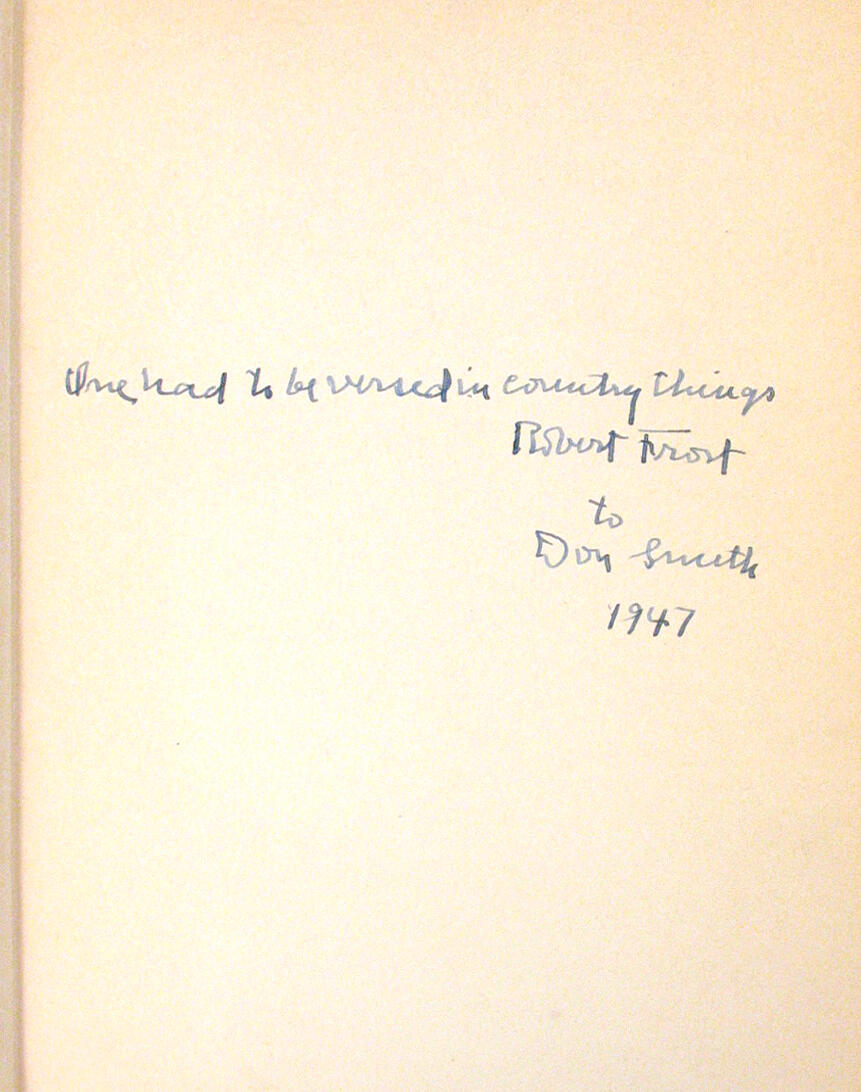 One had to be versed in country things
Robert Frost
to
Don Smith
1947